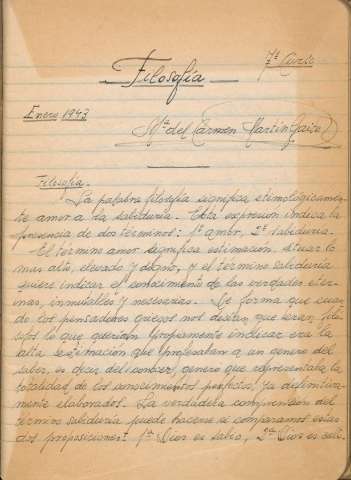 7º Curso
Filosofía
Enero 1943
Mª del Carmen Martín Gaite
Filosofía.-
La palabra filosofía significa etimológicamen-
te amor a la sabiduría. Esta expresión indica la
presencia de dos términos: 1º amor, 2º sabiduría.
El término amor significa estimación, situar lo
mas alto, elevado y digno, y el término sabiduría
quiere indicar el conocimiento de las verdades eter-
nas, inmutables y necesarias. De forma que cuan-
do los pensadores griegos nos decían que eran filó-
sofos lo que querían propiamente indicar era la
alta estimación que profesaban a un género del
saber, es decir del conocer, género que representaba la
totalidad de los conocimientos perfectos, ya definitiva-
mente elaborados. La verdadera comprensión del
término sabiduría puede hacerse si comparamos estas
dos proposiciones: 1ª Dios es sabio, 2ª Dios es